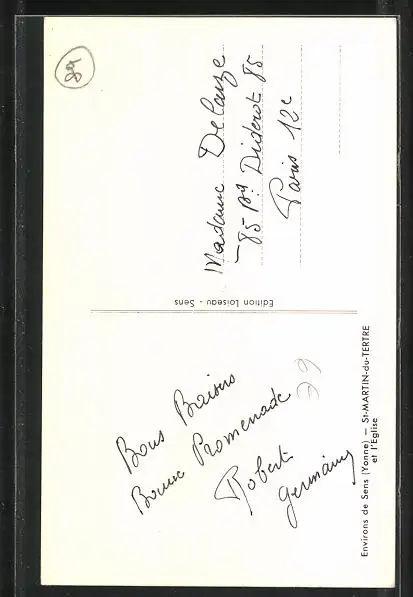 Environs de Sens (Yonne) — St-MARTIN-du-TERTRE
et l'Eglise
Bons Baisers
Bonne Promenade
Robert
Germaine
Edition Loiseau - Sens
Madame Delauze
85 Bd Diderot 85
Paris 12e
89